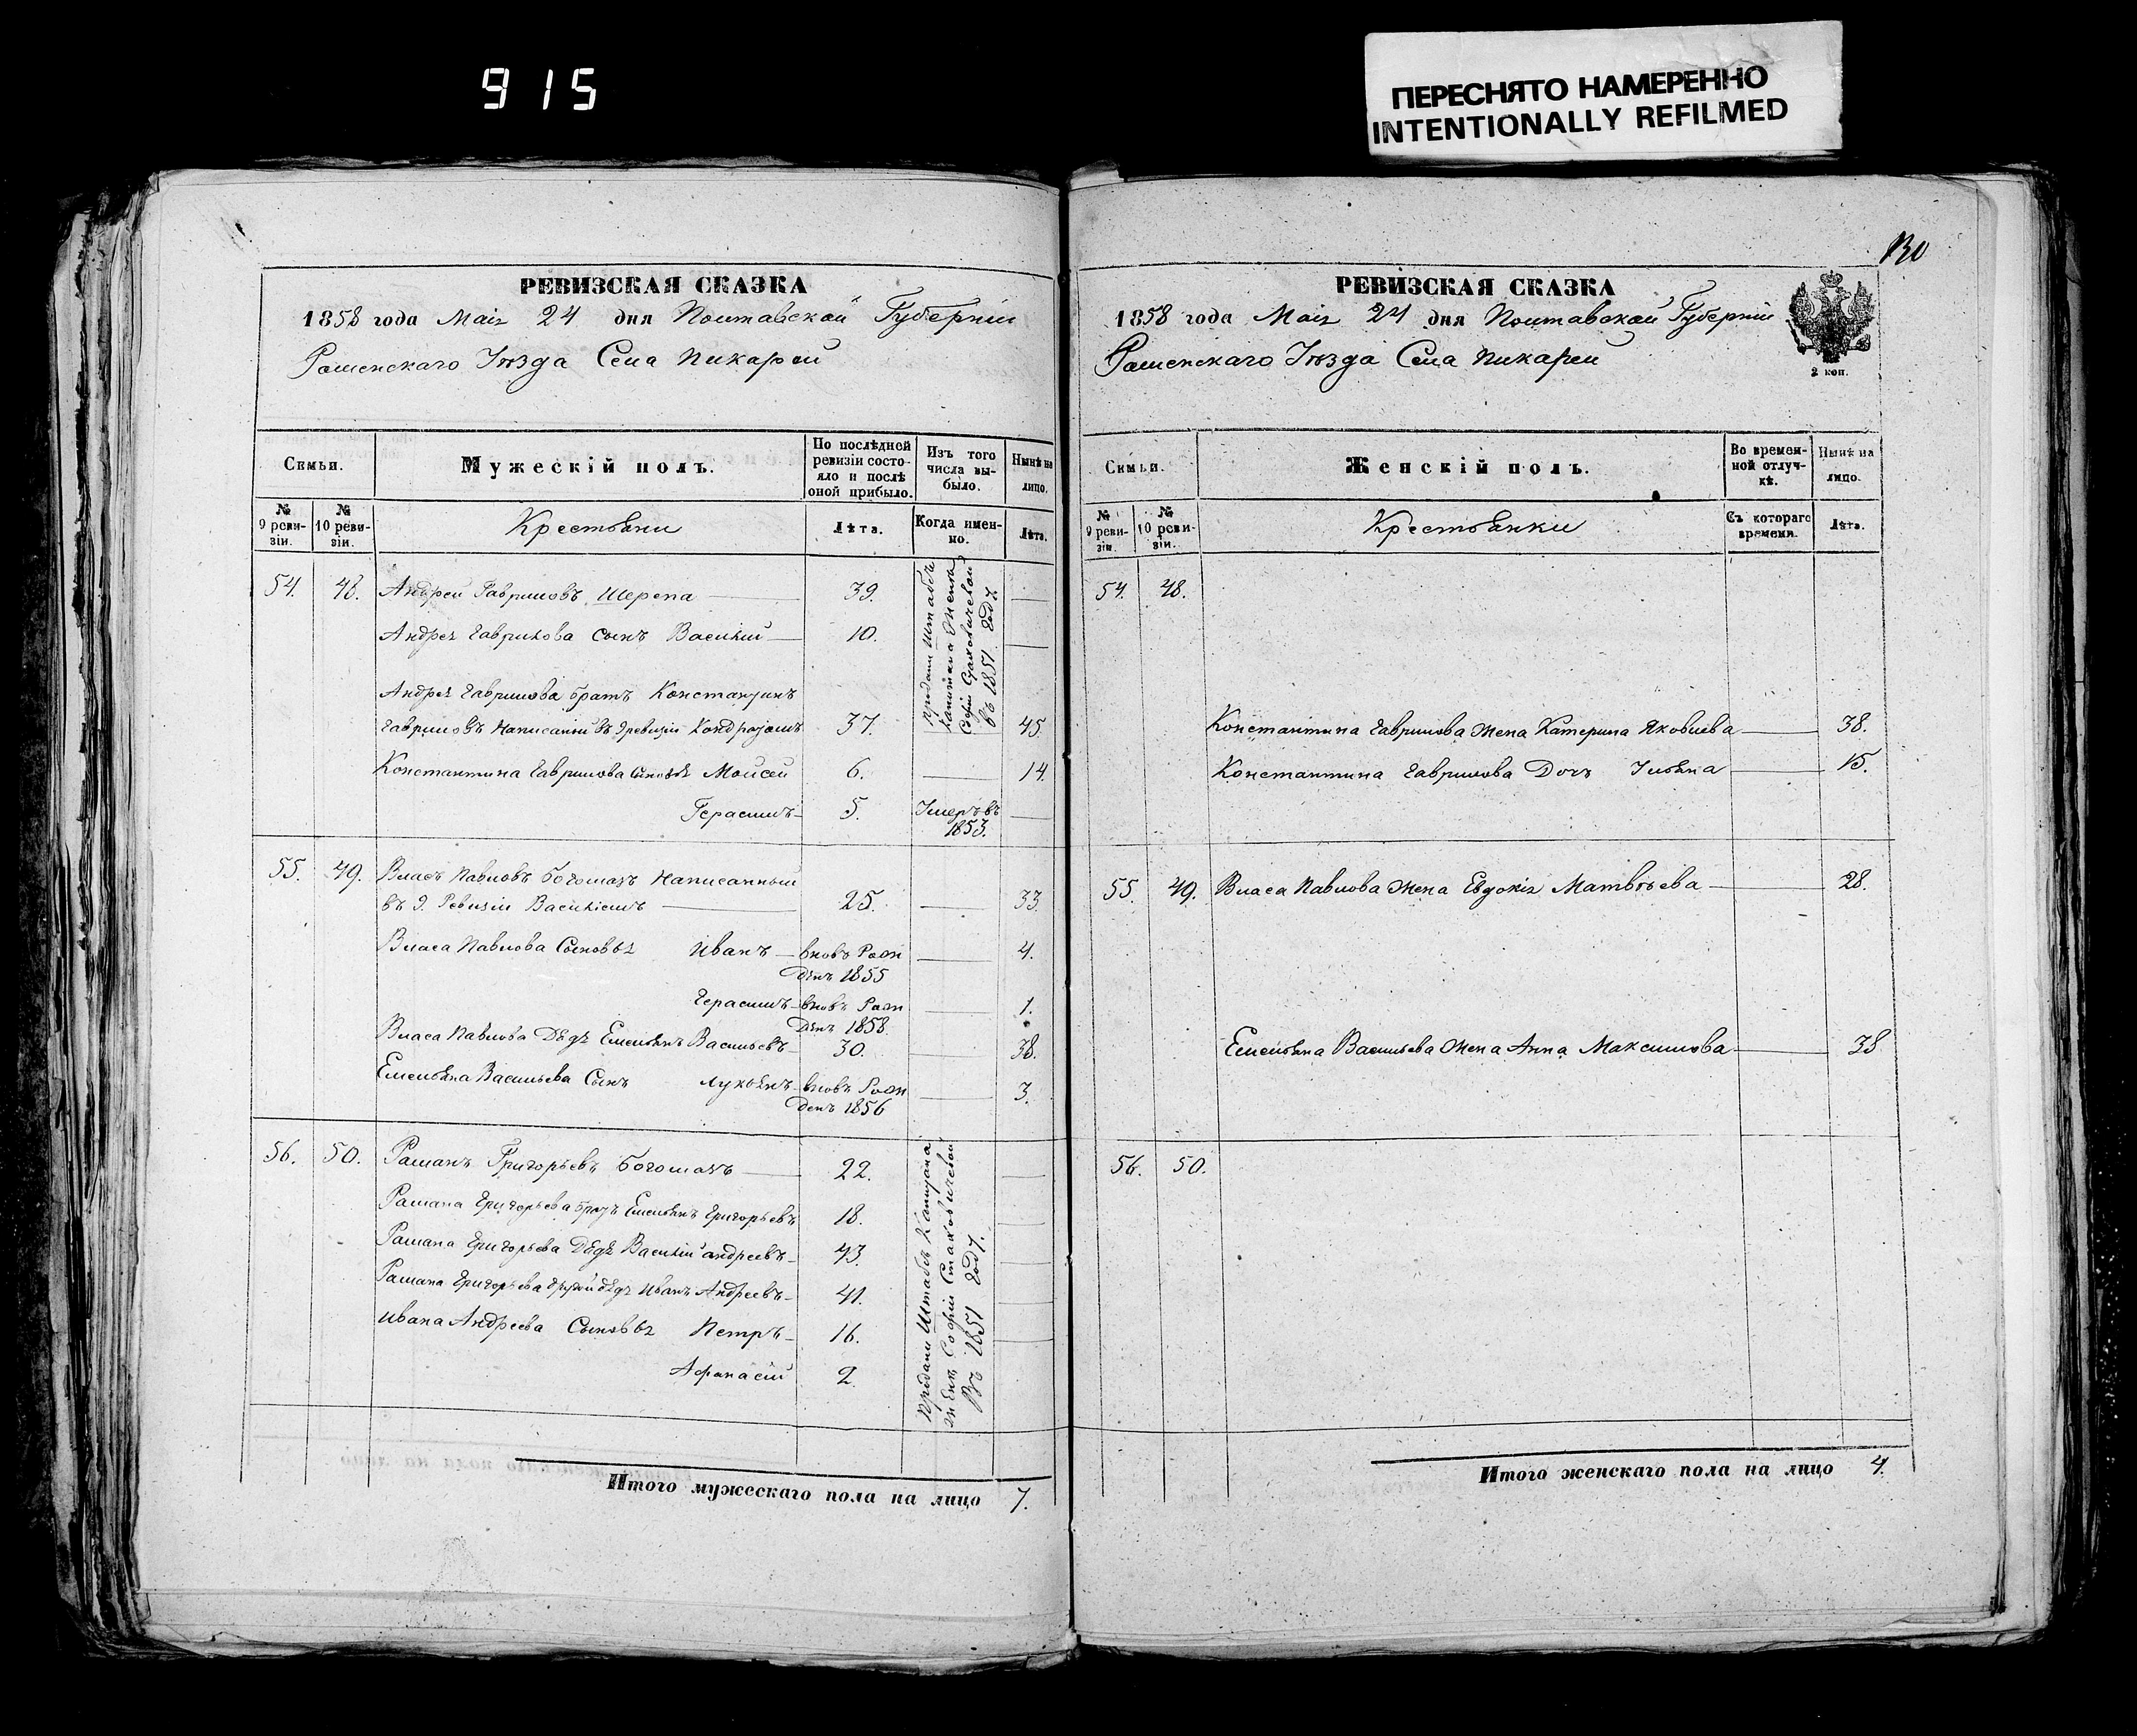 915
ПЕРЕСНЯТО НАМЕРЕННО
INTENTIONALLY REFILMED
РЕВИЗСКАЯ СКАЗКА
1858 года Маія 24 дня Полтавской Губерніи
Роменскаго Уѣзда Села Пикарей
Семьи.
Мужескій полъ.
По послѣдней ревизіи состояло и послѣ оной прибыло.
Изъ того числа выбыло.
Нынѣ на лицо.
№ 9 ревизіи.
№ 10 ревизіи.
Крестьяни
Лѣта.
Когда именно.
Лѣта.
54. 48. Андрей Гавриловъ Шерепа 39.
Андрея Гаврилова сынъ Василий 10.
Проданы Штабъ
Капитана Женѣ
Софіи
въ 1851 году
Андрея Гаврилова братъ Константинъ
Гавриловъ Написаный въ 9 ревизіи Кондратомъ 37. 45
Константина Гаврилова Сыновья Мойсей 6. 14
Герасимъ 5. Умеръ въ
1853.
55. 49. Власъ Павловъ Богомазъ Написанный
въ 9. Ревизіи Василіемъ 25. 33.
Власа Павлова Сыновья Иванъ вновь Рож 4.
денъ 1855
Герасимъ вновь Рож 1.
денъ 1858
Власа Павлова Дядя Емельянъ Васильевъ 30. 38.
Емельяна Васильева Сынъ Лукьянъ вновь Рож 3.
денъ 1856
56. 50. Романъ Григорьевъ Богомазъ 22.
Романа Григорьева братъ Емельянъ Григорьевъ 18.
Романа Григорьева Дядя Василий Андреевъ 43.
Романа Григорьева другой дядя Иванъ Андреевъ 41.
Ивана Андреева Сыновья Петръ 16.
Афанасій 2.
Проданы Штабсъ Капитана
Женѣ Софіи Стаховичевой
Въ 1851 году.
Итого мужескаго пола на лицо 7.
130
РЕВИЗСКАЯ СКАЗКА
1858 года Маія 24 дня Полтавской Губерніи
Роменскаго Уѣзда Села Пикарей
2 коп.
Семьи.
Женскій полъ.
Во временной отлучкѣ.
Нынѣ на лицо.
№ 9 ревизіи.
№ 10 ревизіи.
Крестьянки
Съ котораго времени.
Лѣта.
54. 48.
Константина Гаврилова Жена Катерина Яковлева 38.
Константина Гаврилова Дочь Ульяна 15.
55. 49. Власа Павлова Жена Евдокія Матвѣева 28.
Емельяна Васильева Жена Анна Максимова 38
56. 50.
Итого женскаго пола на лицо 4.